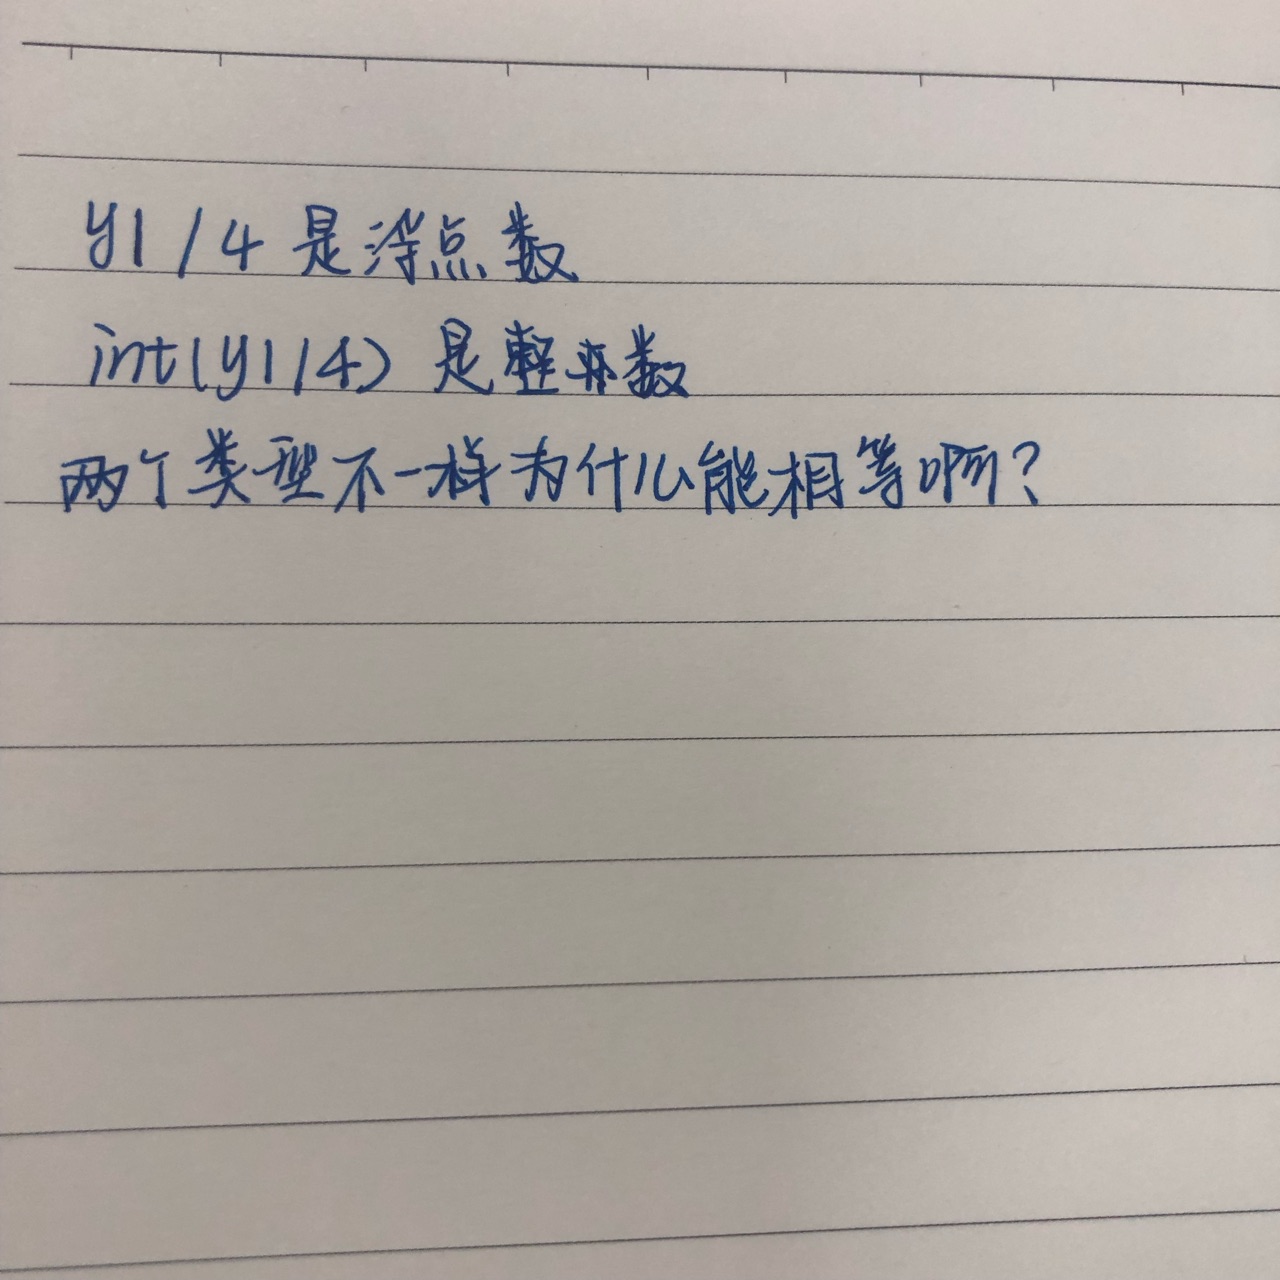 y1/4 是浮点数
int(y1/4) 是整数
两个类型不一样为什么能相等啊?